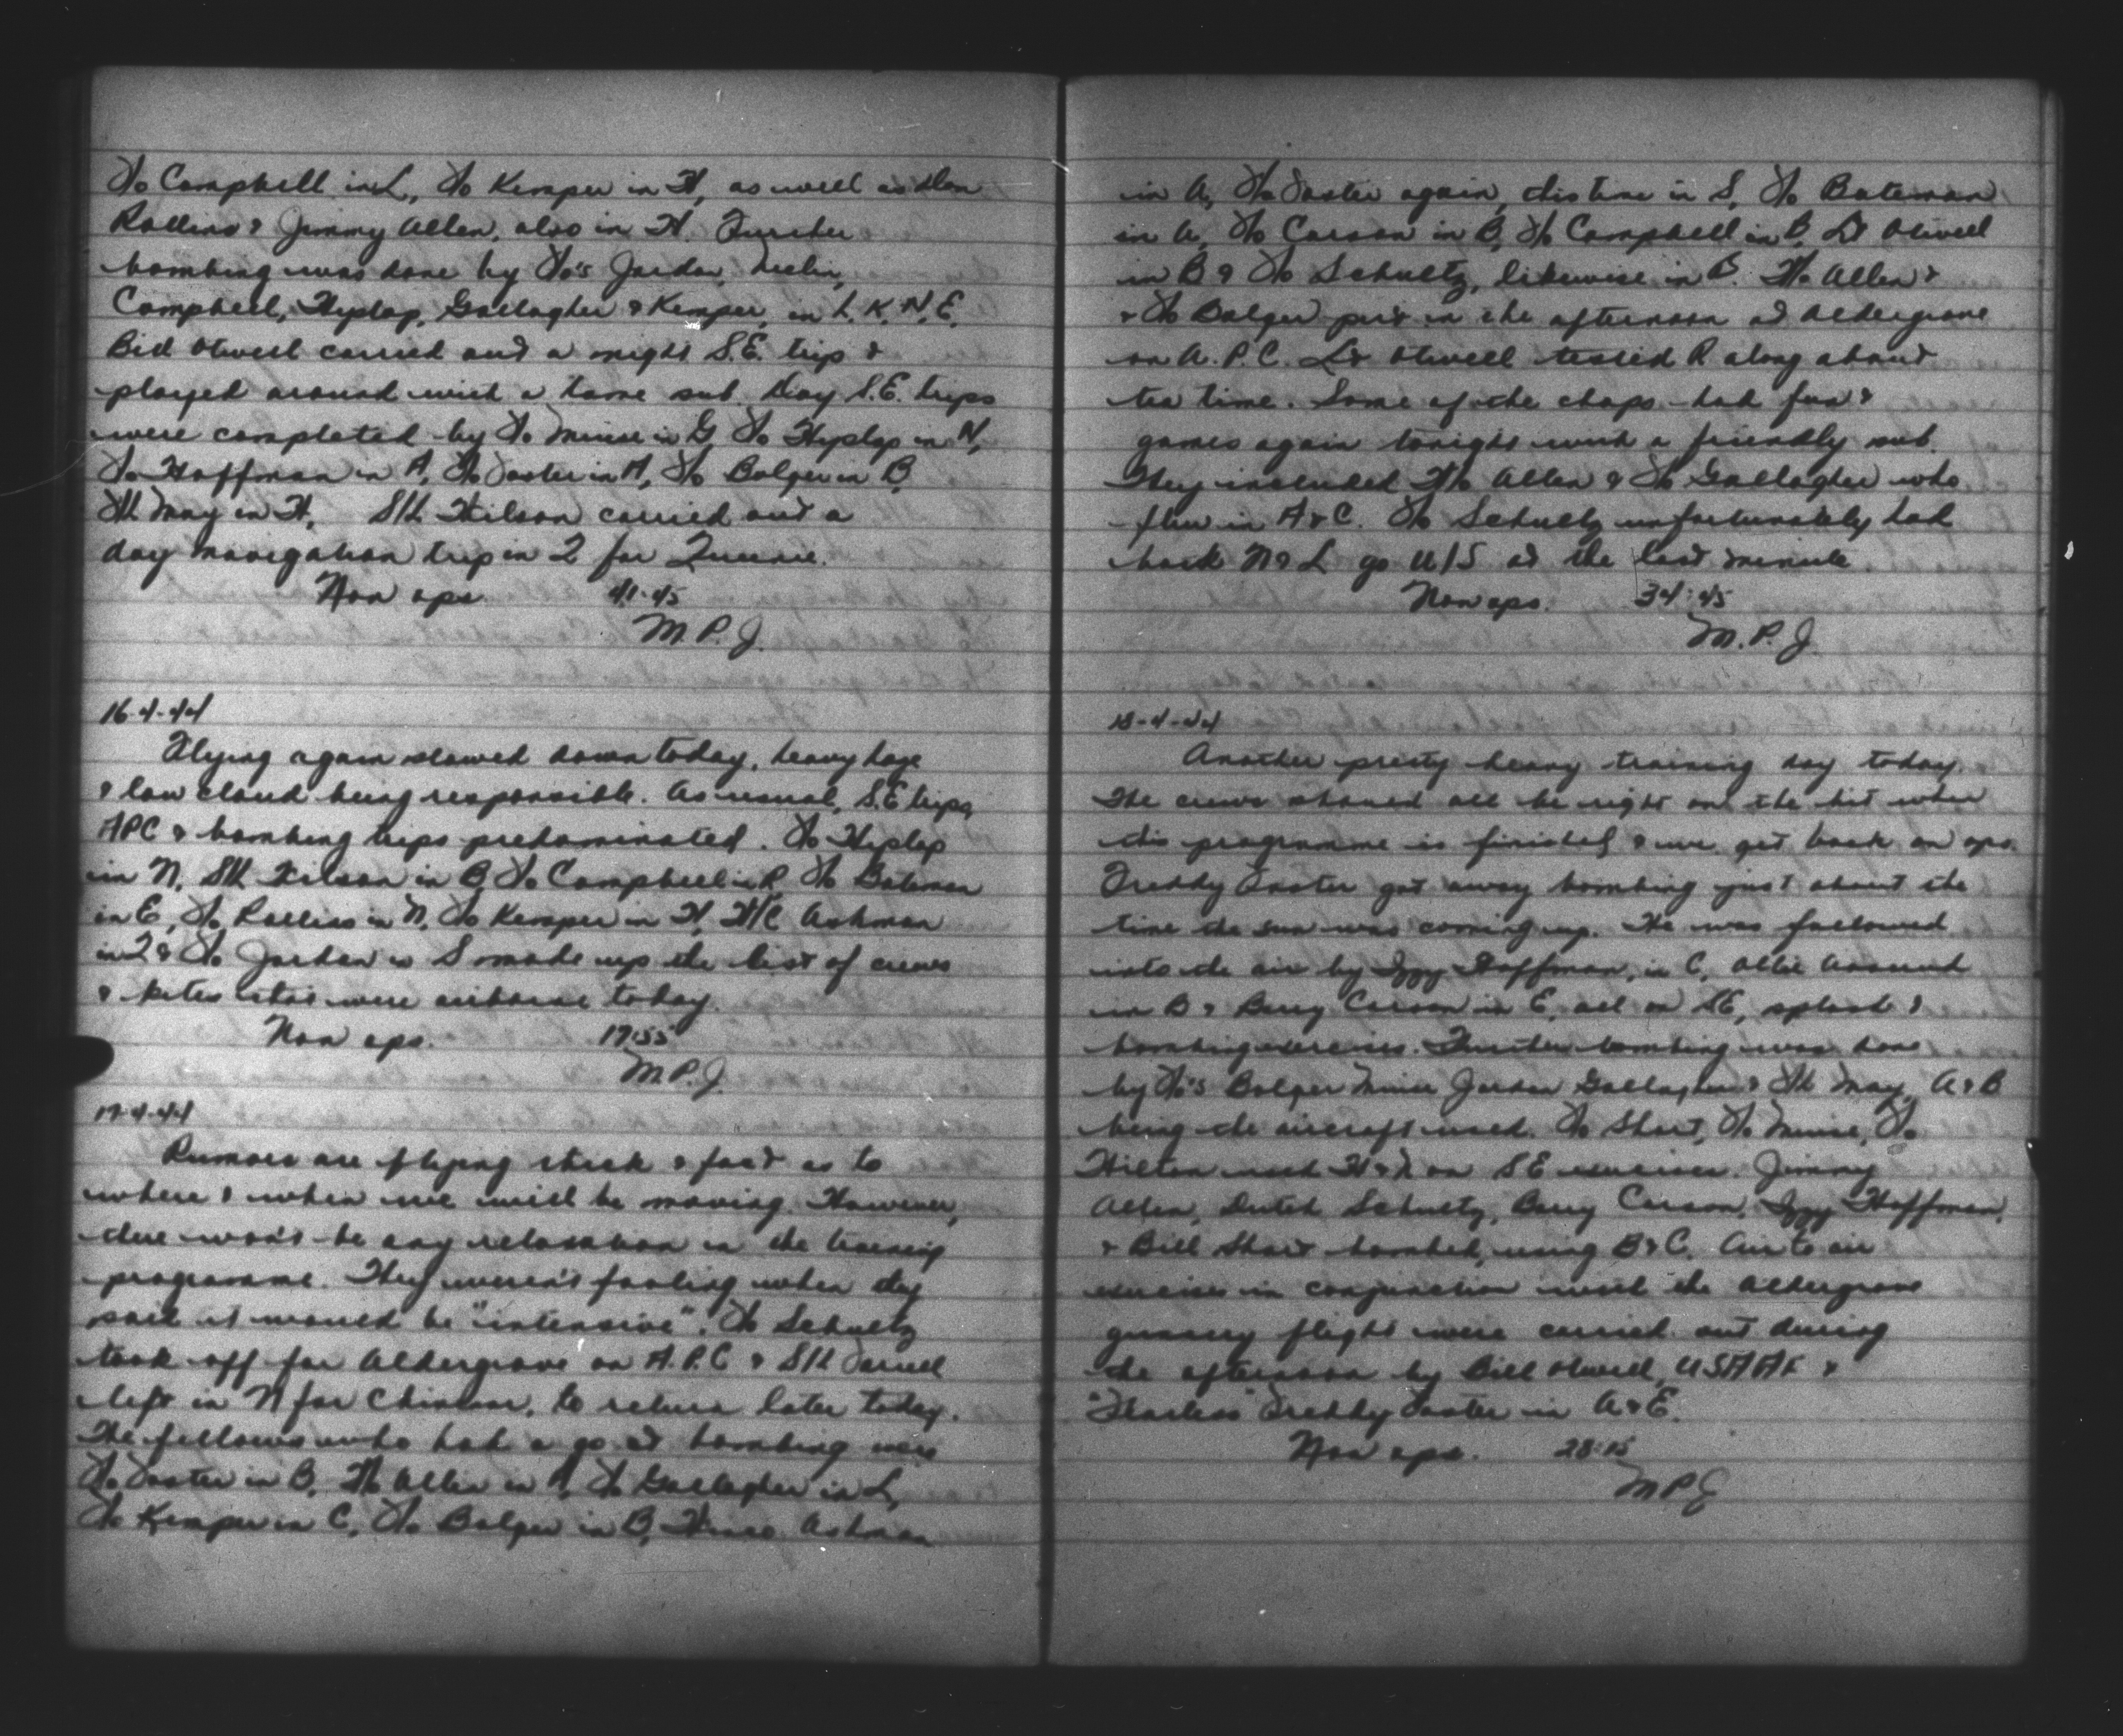 F/o Campbell in L, F/o Kemper in H, as well as Glen
Rollins & Jimmy Allen, also in H. Further
bombing was done by F/o's Jordan,
Campbell, Hyslop, Gallagher & Kemper, in L, K, N, E.
Bill Otwell carried out a night S.E. trip &
played around with a tame sub. Day S.E. trips
were completed by F/o Minise in G, F/o Hyslop in N,
F/o Hoffman in A, F/o Foster in A, F/o Bolger in B,
F/L May in H, S/L Hilson carried out a
day navigation trip in Q for Queenie.
Non ops. 41:45
M.P.J.
16-4-44
Flying again slowed down today, heavy haze
& low cloud being responsible. As usual, S.E. trips,
APC & bombing trips predominated. F/o Hyslop
in N, S/L in B, F/o Campbell in R, F/o Bateman
in E, F/o Rollins in N, F/o Kemper in H, W/C Ashman
in Q & F/o Jordan in S made up the list of crews
& kites that were airborne today.
Non ops. 17:55
M.P.J.
17-4-44
Rumors are flying thick & fast as to
where & when we will be moving. However,
there won't be any relaxation in the training
programme. They weren't fooling when they
said it would be "intensive". F/o Schultz
took off for Aldergrove on A.P.C & S/L Farrell
left in N for Chivenor, to return later today.
The fellows who had a go at bombing were
F/o Foster in B, F/o Allen in A, F/o Gallagher in L,
F/o Kemper in C, F/o Bolger in B, Ashman
in A, F/o Foster again, this time in S, F/o Bateman
in A, F/o Carson in B, F/o Campbell in B, Lt Otwell
in B & F/o Schultz, likewise in B. F/o Allen &
& F/o Bolger put in the afternoon at Aldergrove
on A.P.C. Lt Otwell tested R along about
tea time. Some of the chaps had fun &
games again tonight with a friendly sub.
They included F/o Allen & F/o Gallagher who
flew in A & C. F/o Schultz unfortunately had
both N & L go U/S at the last minute.
Non ops. 34:45
M.P.J.
18-4-44
Another pretty heavy training day today.
The crews should all be right on the bit when
this programme is finished & we get back on ops.
Freddy Foster got away bombing just about the
time the sun was coming up. He was followed
into the air by Izzy Hoffman, in C, Ollie
in B & Barry Carson in E, all on SE, splash &
bombing exercises. Further bombing was done
by F/o's Bolger Minise Jordan Gallagher & F/L May, A & B
being the aircraft used. F/o Short, F/o Minise, F/o
Hilton used H & N on SE exercises. Jimmy
Allen, Dutch Schultz, Barry Carson, Izzy Hoffman,
& Bill Short bombed, using B & C. Air to air
exercises in conjunction with the Aldergrove
gunnery flight were carried out during
the afternoon by Bill Otwell, USAAF &
"Fearless" Freddy Foster in A & E.
Non ops. 28:15
M.P.J.